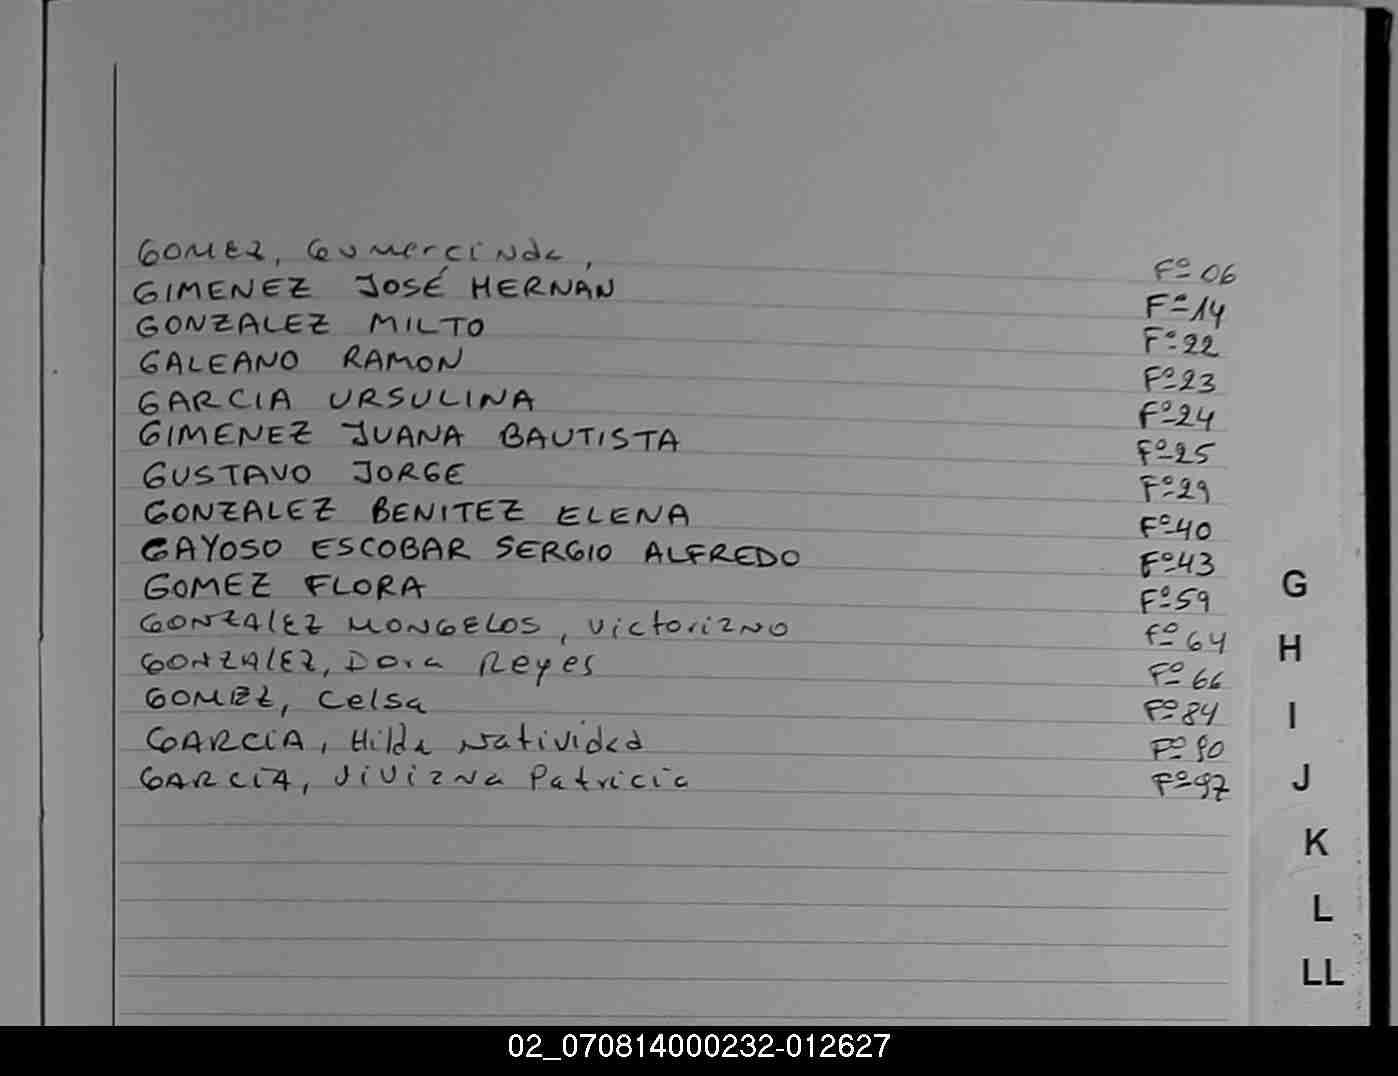 GOMEZ, Gumercinda, Fº 06
GIMENEZ JOSÉ HERNAN Fº 14
GONZALEZ MILTO Fº 22
GALEANO RAMON Fº 23
GARCIA URSULINA Fº 24
GIMENEZ JUANA BAUTISTA Fº 25
GUSTAVO JORGE Fº 29
GONZALEZ BENITEZ ELENA Fº 40
GAYOSO ESCOBAR SERGIO ALFREDO Fº 43
GOMEZ FLORA Fº 59
GONZAlEZ MONGELOS, Victoriano Fº 64
GONZAlEZ, Dora Reyes Fº 66
GOMEZ, Celsa Fº 84
GARCIA, Hilda Natividad Fº 90
GARCIA, Viviana Patricia Fº 97
G
H
I
J
K
L
LL
02_070814000232-012627